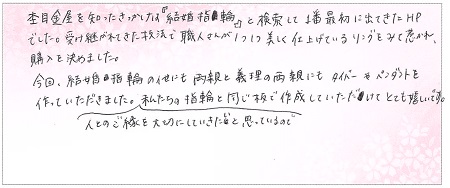 杢目金屋を知ったきっかけは『結婚指輪』と検索して1番最初に出てきたHP
でした。受け継がれてきた技法で職人さんが1つ1つ美しく仕上げているリングをみて惹かれ、
購入を決めました。
今回、結婚指輪の他にも両親と義理の両親にもタイバーやペンダントを
作っていただきました。私たちの指輪と同じ板で作成していただけてとても嬉しいです。
人とのご縁を大切にしていきたいと思っているので